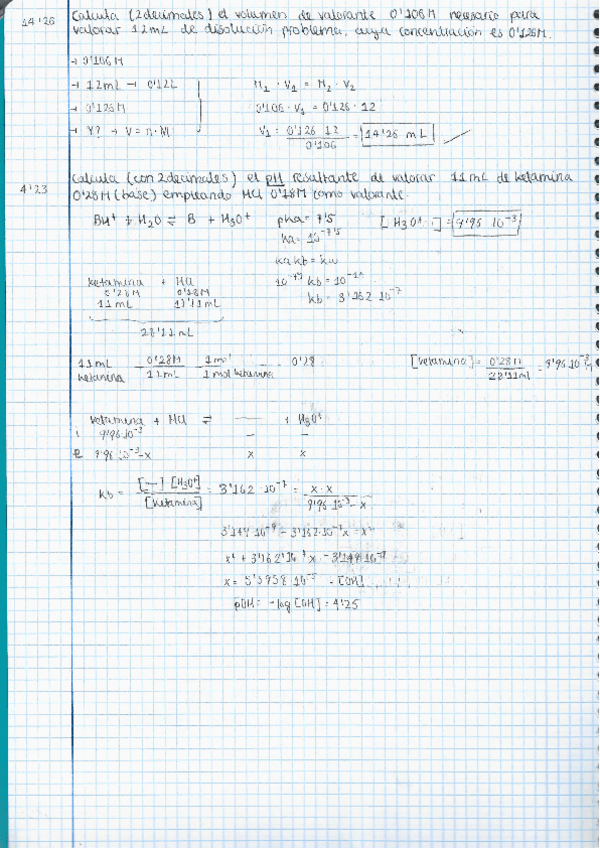 14'26
Calcula (2 decimales) el volumen de valorante 0'106M necesario para
valorar 12mL de disolución problema, cuya concentración es 0'126M.
→ 0'106M
→ 12mL → 0'12L
M₁ · V₁ = M₂ · V₂
→ 0'126M
0'106 · V₁ = 0'126 · 12
→ V? → V = n · M
V₁ = 0'126 · 12 / 0'106 = 14'26 mL
4'23
Calcula (con 2 decimales) el pH resultante de valorar 11mL de ketamina
0'28M (base) empleando HCl 0'18M como valorante.
BH⁺ + H₂O ⇌ B + H₃O⁺
pka = 7'5
[H₃O⁺] = 9'95 10⁻³
ka = 10⁻⁷'⁵
ka kb = kw
ketamina + HCl
10⁻⁷'⁵ kb = 10⁻¹⁴
0'28M 0'18M
kb = 3'162 10⁻⁷
11mL 17'11mL
28'11mL
11mL ketamina 0'28M / 11mL 1mol / 1mol ketamina = 0'28
[ketamina] = 0'28M / 28'11ml = 9'96 10⁻³
ketamina + HCl ⇌ — + H₃O⁺
i 9'96 10⁻³ – –
e 9'96 10⁻³-x x x
kb = [—] [H₃O⁺] / [ketamina] = 3'162 · 10⁻⁷ = x · x / 9'96 10⁻³ - x
3'149 10⁻⁹ - 3'162·10⁻⁷x = x²
x² + 3'162 10⁻⁷x - 3'149 10⁻⁹
x = 5'5958 10⁻⁵ = [OH]
pOH = -log [OH] = 4'25